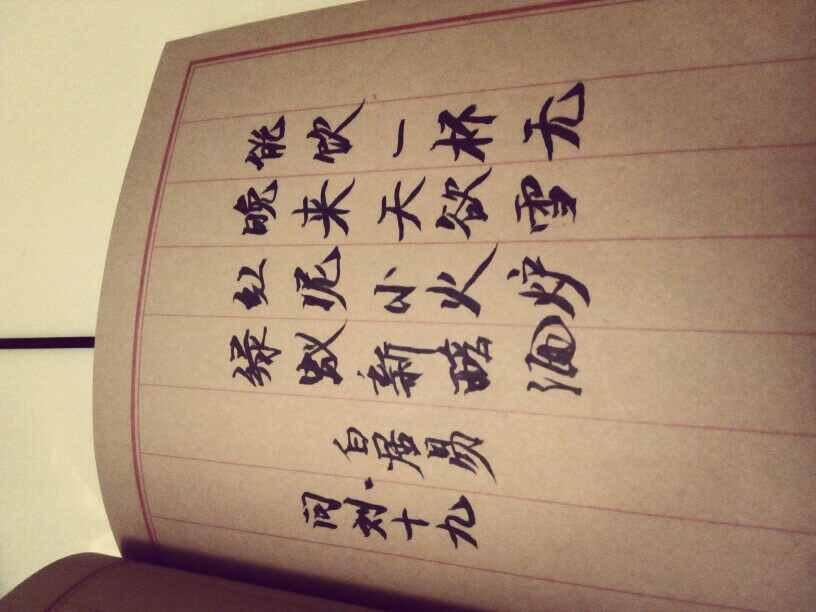 能饮一杯无
晚来天欲雪
红泥小火炉
绿蚁新醅酒
白居易
问刘十九